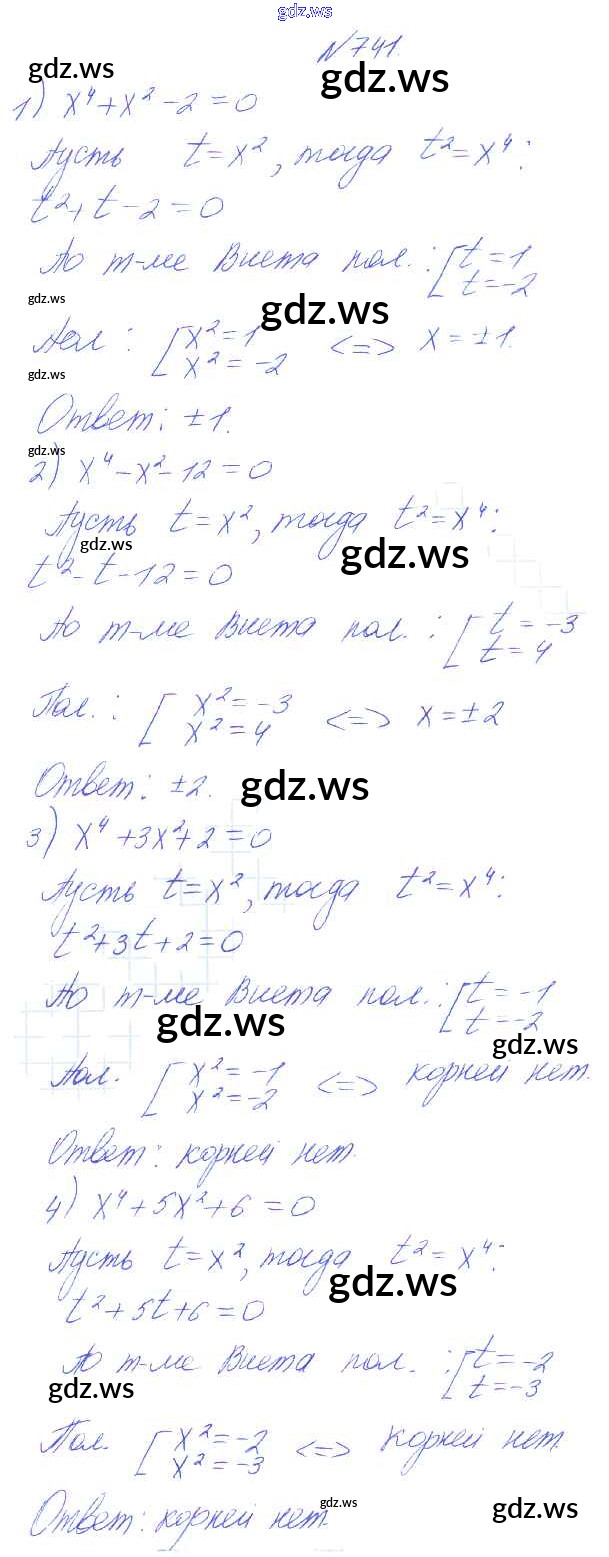 gdz.ws
N741.
gdz.ws gdz.ws
1) x⁴ + x² - 2 = 0
Пусть t = x², тогда t² = x⁴:
t² + t - 2 = 0
По т-ме Виета пол.: [t = 1
t = -2
gdz.ws gdz.ws
Пол: [x² = 1 <=> x = ±1.
x² = -2
gdz.ws
Ответ: ±1.
gdz.ws
2) x⁴ - x² - 12 = 0
Пусть t = x², тогда t² = x⁴:
gdz.ws gdz.ws
t² - t - 12 = 0
По т-ме Виета пол.: [t = -3
t = 4
Пол.: [x² = -3 <=> x = ±2
x² = 4
Ответ: ±2. gdz.ws
3) x⁴ + 3x² + 2 = 0
Пусть t = x², тогда t² = x⁴:
t² + 3t + 2 = 0
По т-ме Виета пол.: [t = -1
t = -2
gdz.ws gdz.ws
Пол. [x² = -1 <=> корней нет.
x² = -2
Ответ: корней нет.
4) x⁴ + 5x² + 6 = 0
Пусть t = x², тогда t² = x⁴:
gdz.ws
t² + 5t + 6 = 0
По т-ме Виета пол.: [t = -2
t = -3
gdz.ws
Пол. [x² = -2 <=> корней нет
x² = -3
Ответ: корней нет.
gdz.ws gdz.ws